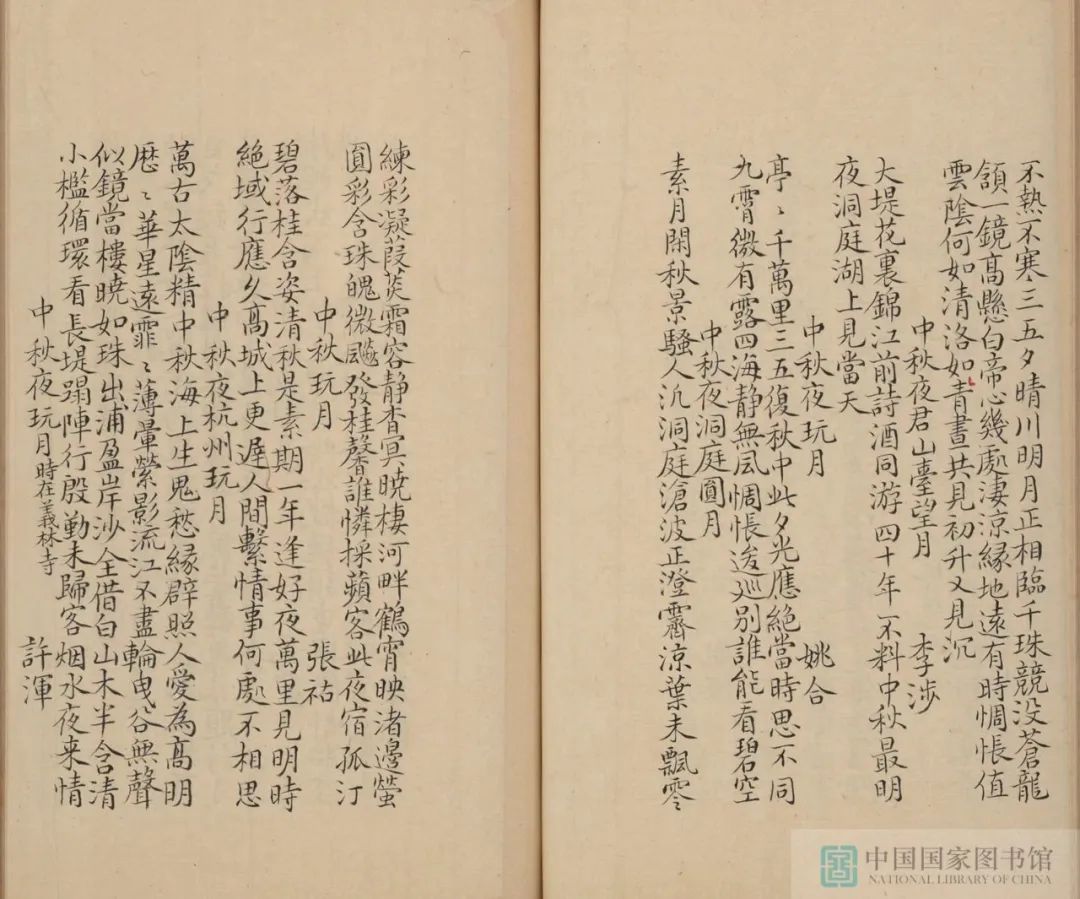 不熱不寒三五夕晴川明月正相臨千珠競没蒼龍
頷一鏡高懸白帝心幾處淒涼緣地遠有時惆悵值
雲陰何如清洛如青晝共見初升又見沉
中秋夜君山臺望月 李涉
大堤花裏錦江前詩酒同游四十年不料中秋最明
夜洞庭湖上見當天
中秋夜玩月 姚合
亭〻千萬里三五復秋中此夕光應絕當時思不同
九霄微有露四海静無風惆悵逡巡别誰能看碧空
中秋夜洞庭圓月
素月閑秋景騷人汎洞庭滄波正澄霽涼葉未飄零
練彩凝葭菼霜容静杳冥曉棲河畔鶴宵映渚邊螢
圓彩含珠魄微飈發桂馨誰憐採蘋客此夜宿孤汀
中秋玩月 張祜
碧落桂含姿清秋是素期一年逢好夜萬里見明時
絕域行應久高城上更遲人間繫情事何處不相思
中秋夜杭州玩月
萬古太陰精中秋海上生鬼愁緣辟照人愛為高明
歴〻華星遠霏〻薄暈縈影流江不盡輪曳谷無聲
似鏡當樓曉如珠出浦盈岸沙全借白山木半含清
小檻循環看長堤蹋陣行殷勤未歸客烟水夜来情
中秋夜玩月時在義林寺 許渾
中国国家图书馆
NATIONAL LIBRARY OF CHINA